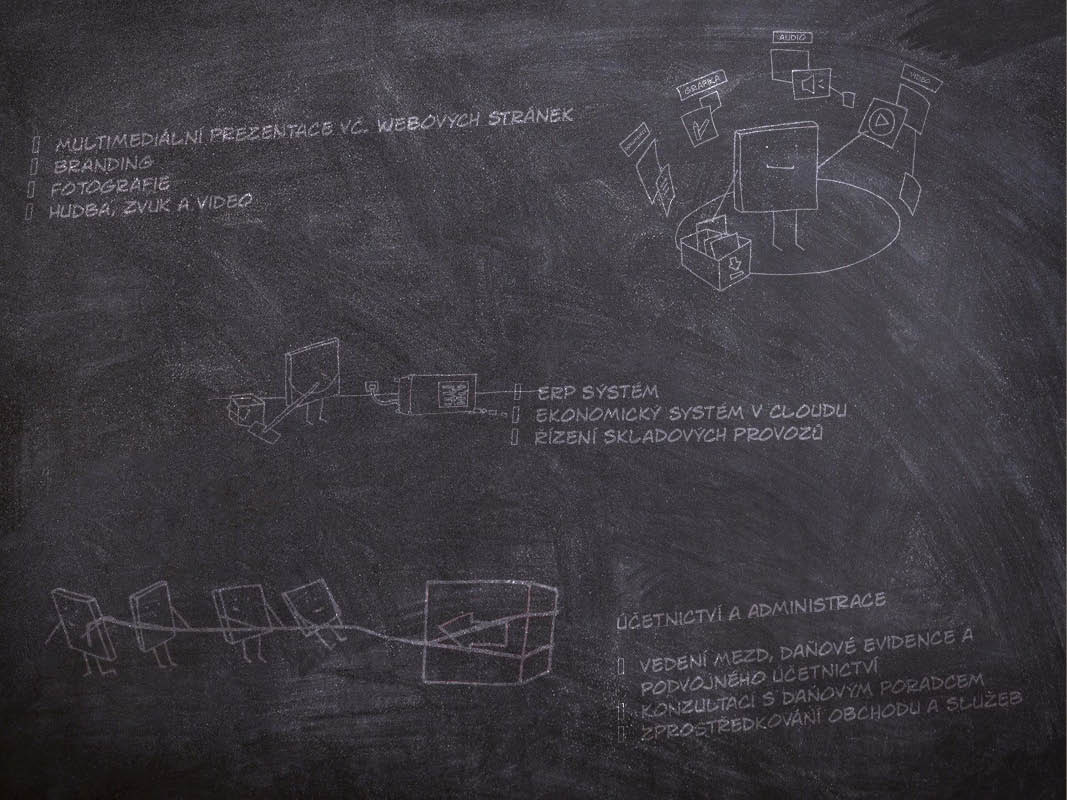 AUDIO
VIDEO
GRAFIKA
MULTIMEDIÁLNÍ PREZENTACE VČ. WEBOVÝCH STRÁNEK
BRANDING
FOTOGRAFIE
HUDBA, ZVUK A VIDEO
ERP SYSTÉM
EKONOMICKÝ SYSTÉM V CLOUDU
ŘÍZENÍ SKLADOVÝCH PROVOZŮ
ÚČETNICTVÍ A ADMINISTRACE
VEDENÍ MEZD, DAŇOVÉ EVIDENCE A
PODVOJNÉHO ÚČETNICTVÍ
KONZULTACI S DAŇOVÝM PORADCEM
ZPROSTŘEDKOVÁNÍ OBCHODU A SLUŽEB